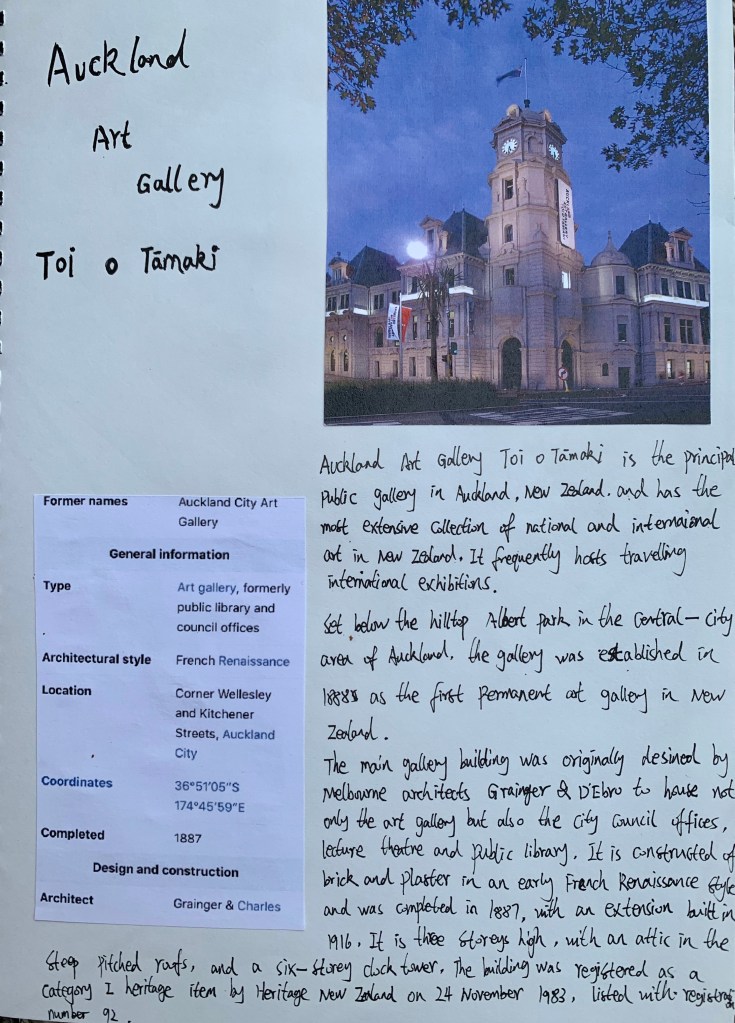 Auckland
Art
Gallery
Toi o Tāmaki
Auckland Art Gallery Toi o Tāmaki is the principal
public gallery in Auckland, New Zealand. and has the
most extensive collection of national and internaional
art in New Zealand. It frequently hosts travelling
international exhibitions.
Set below the hilltop Albert park in the central-city
area of Auckland, the gallery was established in
1888 as the first permanent art gallery in New
Zealand.
The main gallery building was originally desined by
Melbourne architects Grainger & D'Ebro to house not
only the art gallery but also the city council offices,
lecture theatre and public library. It is constructed of
brick and plaster in an early French Renaissance style
and was completed in 1887, with an extension built in
1916. It is three storeys high, with an attic in the
steep pitched roofs, and a six-storey clock tower. The building was registered as a
Category I heritage item by Heritage New Zealand on 24 November 1983, listed with registration
number 92.
Former names Auckland City Art
Gallery
General information
Type Art gallery, formerly
public library and
council offices
Architectural style French Renaissance
Location Corner Wellesley
and Kitchener
Streets, Auckland
City
Coordinates 36°51′05″S
174°45′59″E
Completed 1887
Design and construction
Architect Grainger & Charles